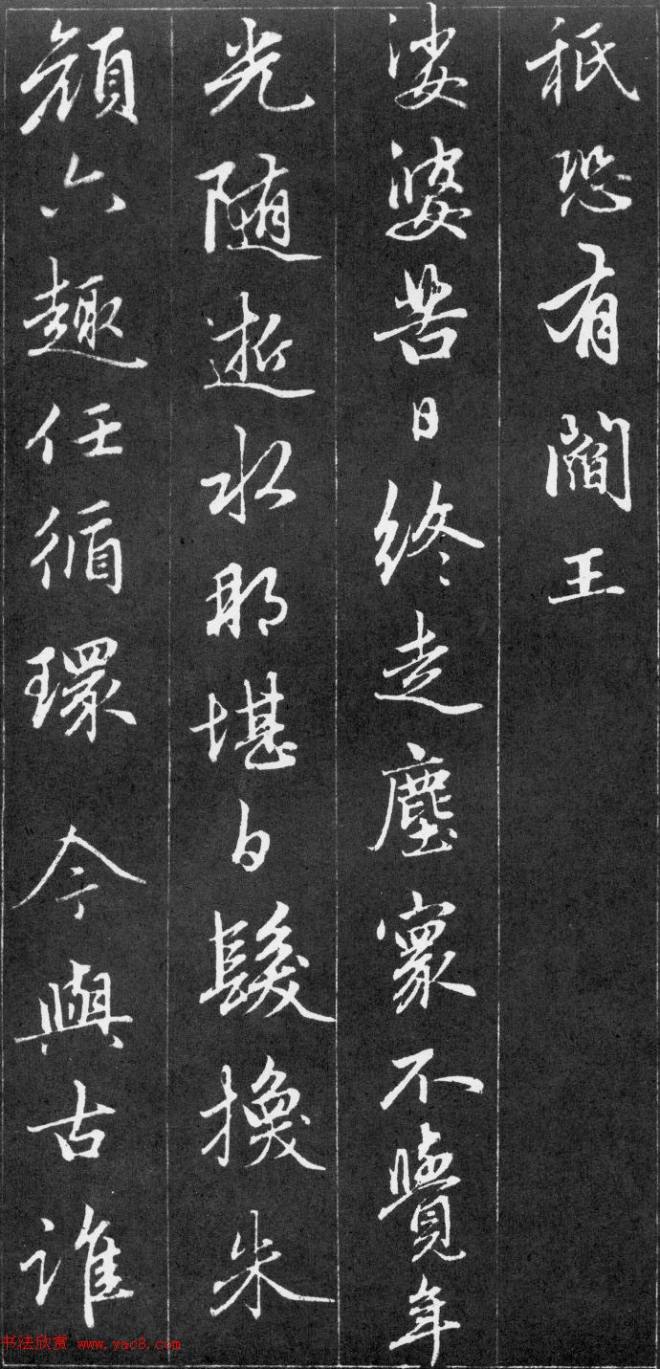 秖恐有閻王
娑婆苦日終走塵寰不覺年
光随逝水那堪白髮換朱
顏六趣任循環今與古誰
书法欣赏 www.yac8.com